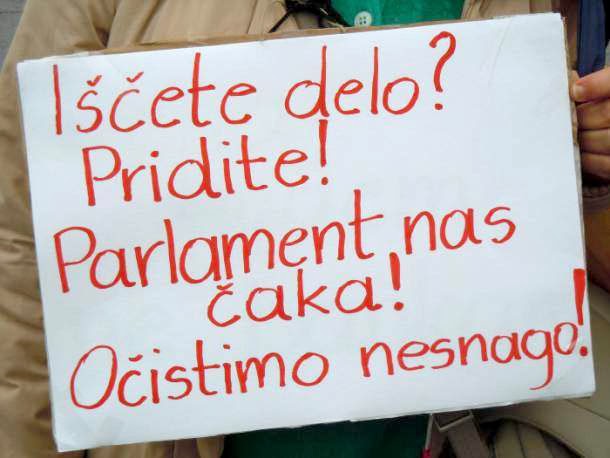 Iščete delo?
Pridite!
Parlament nas
čaka!
Očistimo nesnago!